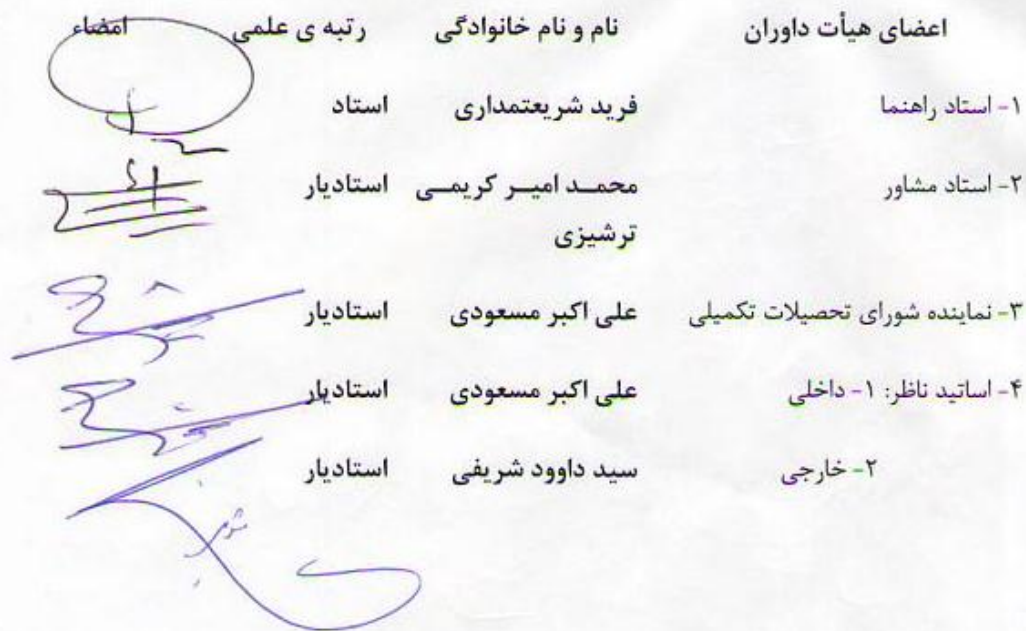 اعضای هیأت داوران نام و نام خانوادگی رتبه ی علمی امضاء
۱- استاد راهنما فرید شریعتمداری استاد
۲- استاد مشاور محمد امیر کریمی استادیار
ترشیزی
۳- نماینده شورای تحصیلات تکمیلی علی اکبر مسعودی استادیار
۴- اساتید ناظر: ۱- داخلی علی اکبر مسعودی استادیار
۲- خارجی سید داوود شریفی استادیار